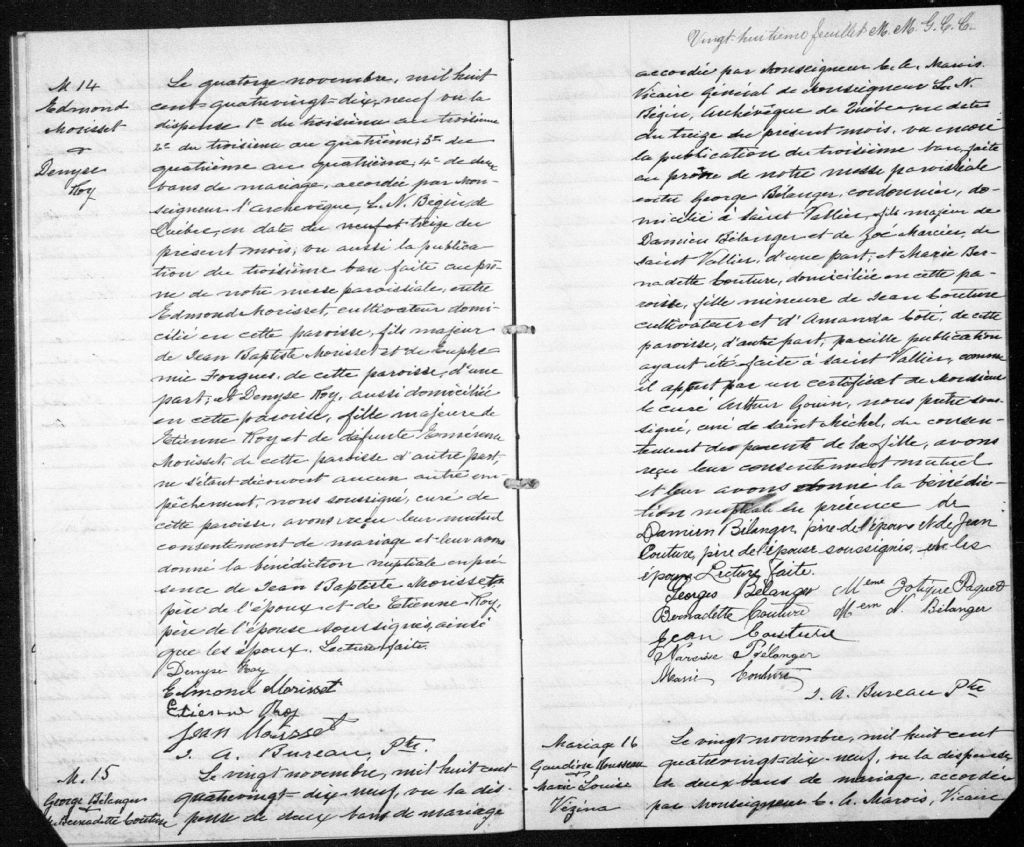 M. 14
Edmond
Morisset
&
Denyse
Roy
Le quatorze novembre, mil huit
cent quatrevingt-dix-neuf vu la
dispense 1º du troisième au troisième
2º du troisième au quatrième, 3º du
quatrième au quatrième, 4º de deux
bans de mariage, accordée par Mon-
seigneur l'archevêque, L. N. Begin, de
Québec, en date du neuf et treize du
présent mois; vu aussi la publica-
tion du troisième ban faite au prô-
ne de notre messe paroissiale, entre
Edmond Morisset, cultivateur domi-
cilié en cette paroisse, fils majeur
de Jean Baptiste Morisset et de Euphé-
mie Forgues, de cette paroisse, d'une
part; et Denyse Roy, aussi domiciliée
en cette paroisse, fille majeure de
Etienne Roy et de défunte Emérence
Morisset, de cette paroisse d'autre part,
ne s'étant découvert aucun autre em-
pêchement, nous soussigné, curé de
cette paroisse, avons reçu leur mutuel
consentement de mariage et leur avons
donné la bénédiction nuptiale en pré-
sence de Jean Baptiste Morisset
père de l'époux et de Etienne Roy,
père de l'épouse soussignés, ainsi
que les époux. Lecture faite.
Denyse Roy
Edmond Morisset
Etienne Roy
Jean Morisset
J. A. Bureau, Ptre.
M. 15
George Bélanger
& Bernadette Couture
Le vingt novembre, mil huit cent
quatrevingt-dix-neuf, vu la dis-
pense de deux bans de mariage
Vingt-huitième feuillet M. M. G. C. C.
accordée par Monseigneur C. A. Marois
Vicaire Général de Monseigneur L. N.
Bégin, Archévêque de Québec, en date
du treize du présent mois. vu encore
la publication du troisième ban, faite
au prône de notre messe paroissiale
entre George Bélanger, cordonnier, do-
micilié à Saint Vallier, fils majeur de
Damien Bélanger et de Zoé Mercier, de
saint Vallier, d'une part; et Marie Ber-
nadette Couture, domiciliée en cette pa-
roisse, fille mineure de Jean Couture
cultivateur et d'Amanda Coté, de cette
paroisse, d'autre part, pareille publication
ayant été faite à saint Vallier, comme
il appert par un certificat de Monsieur
le curé Arthur Gouin, nous prêtre sous-
signé, curé de saint Michel, du consen-
tement des parents de la fille, avons
reçu leur consentement mutuel
et leur avons donné la bénédic-
tion nuptiale en présence de
Damien Bélanger, père de l'époux et de Jean
Couture, père de l'épouse soussignés, les
époux Lecture faite.
Georges Bélanger
Bernadette Couture
Jean Couture
Narcisse Bélanger
Marie Couture
Zotique Paquet
N. Bélanger
J. A. Bureau Ptre
Mariage 16
Gaudiose Rousseau
&
Marie Louise
Vézina
Le vingt novembre, mil huit cent
quatrevingt-dix-neuf, vu la dispense
de deux bans de mariage, accordée
par Monseigneur C. A. Marois, Vicaire